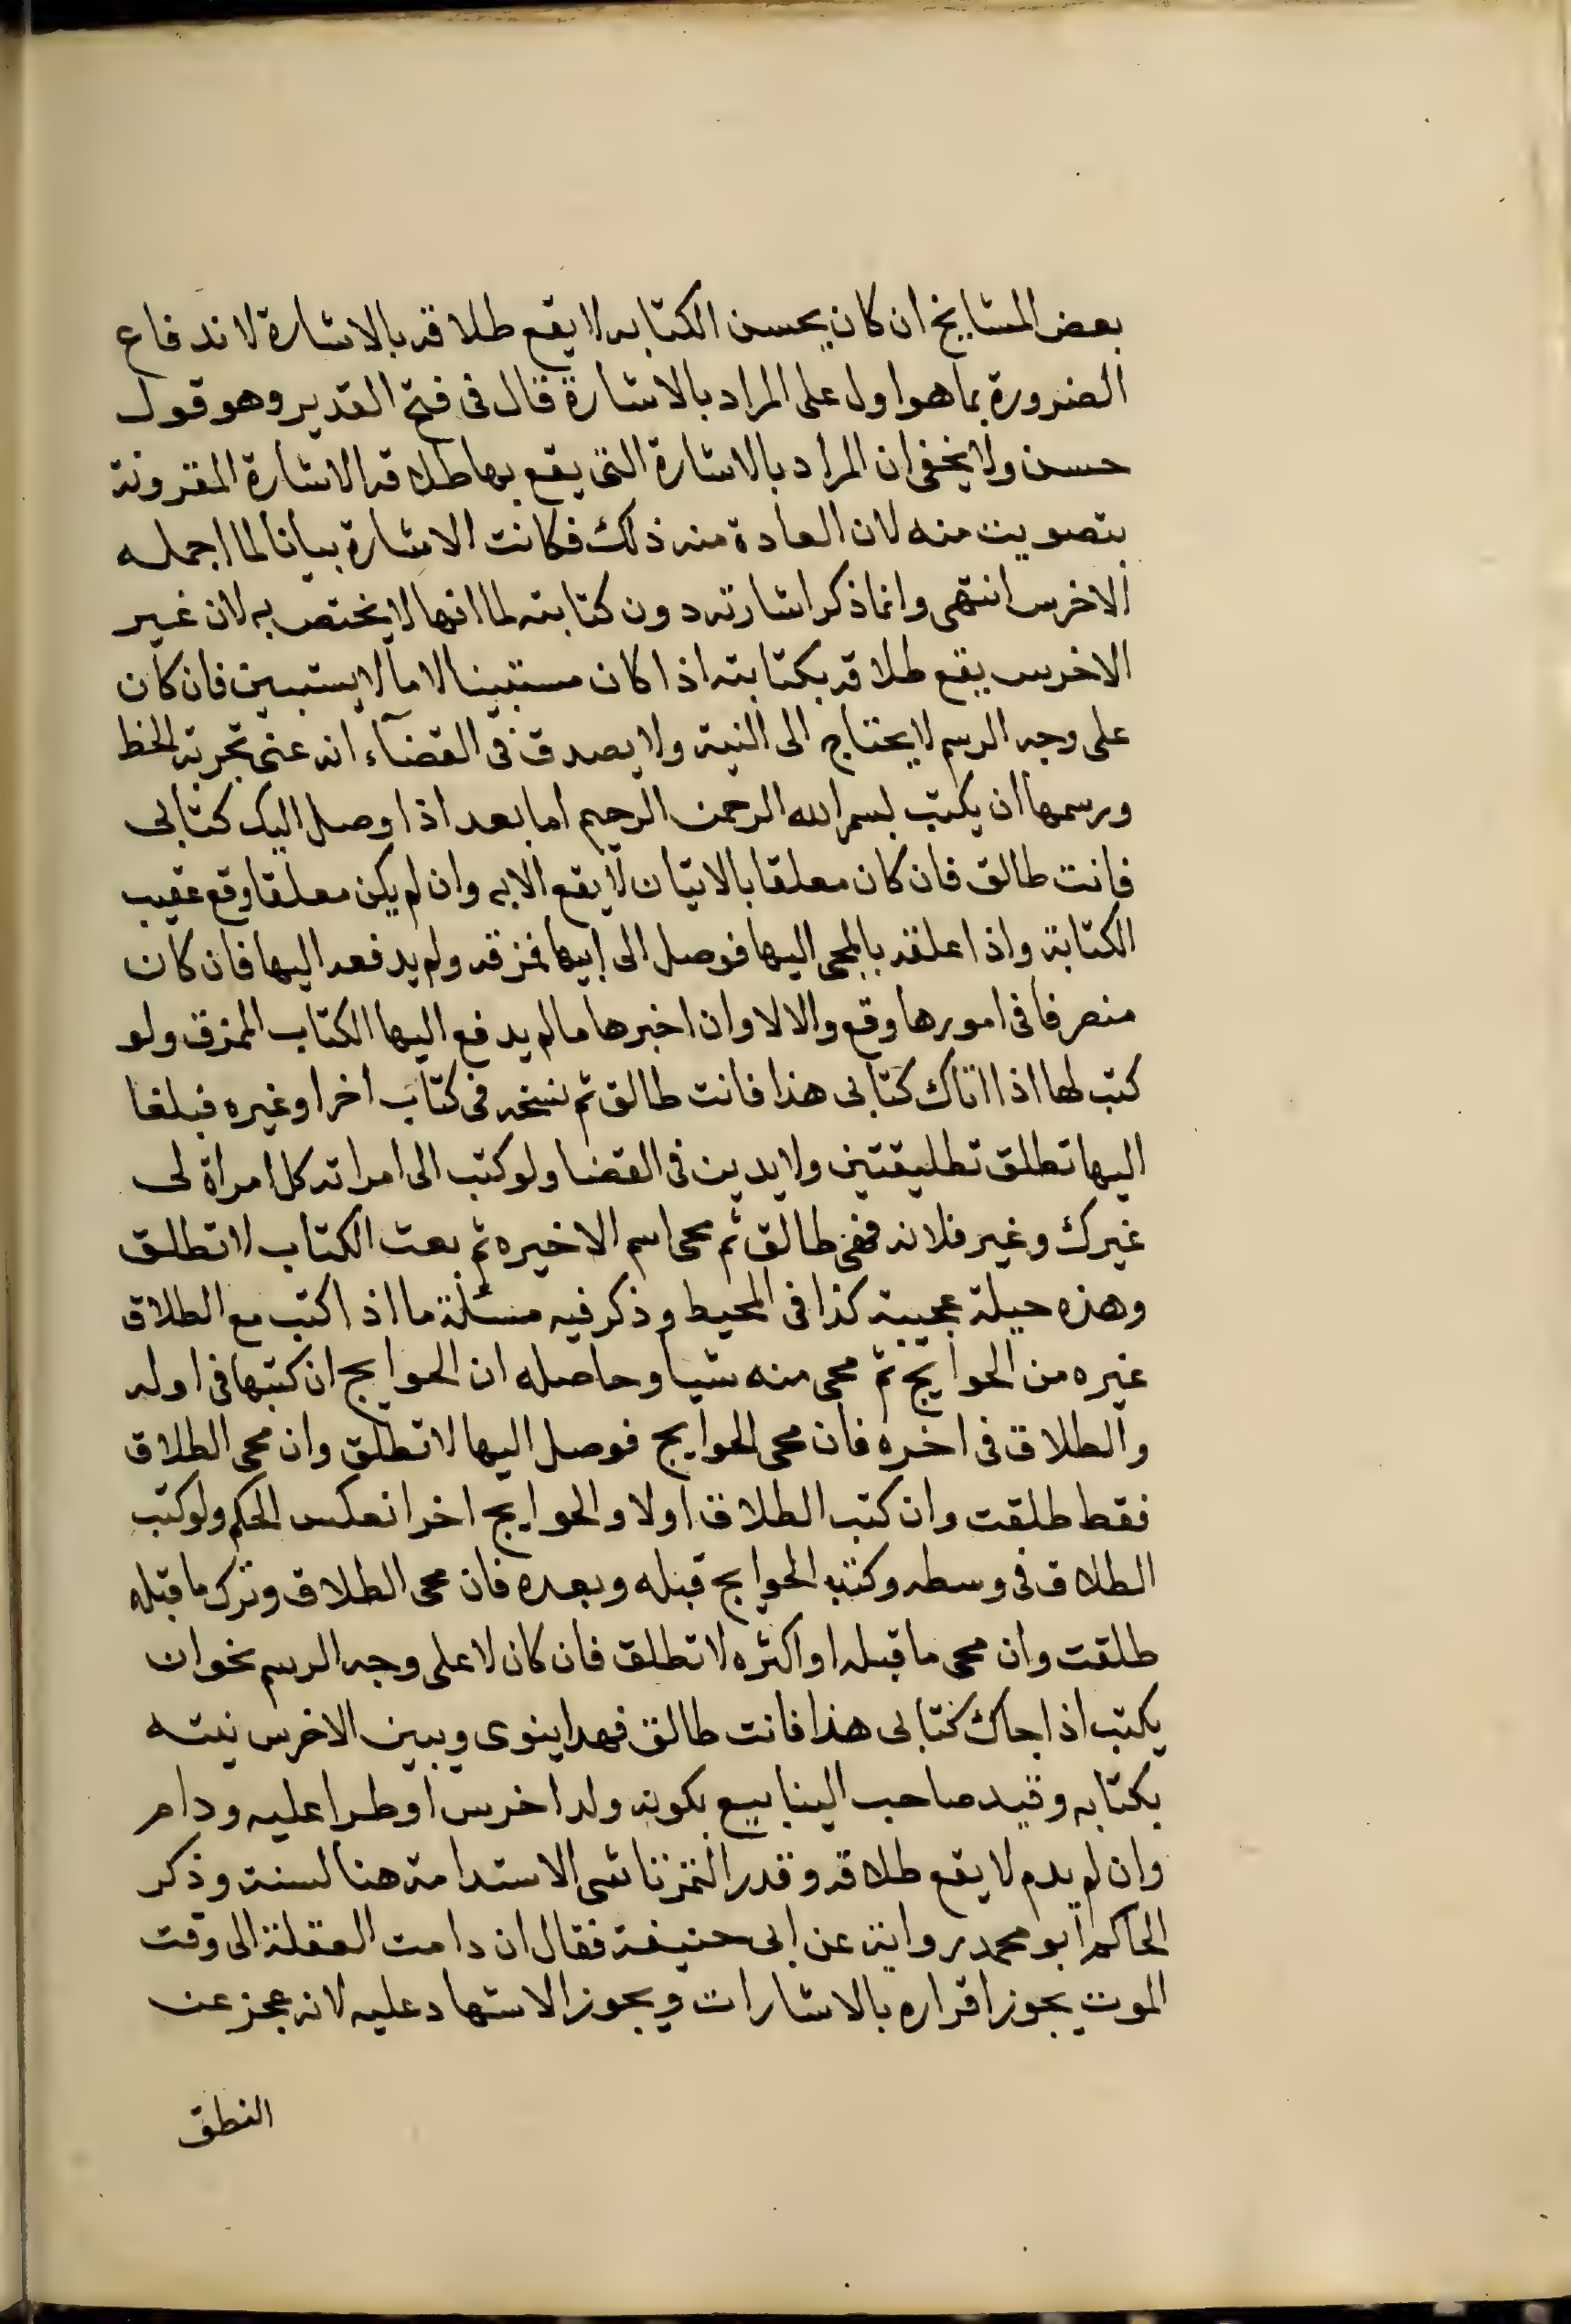 بعض المشايخ ان كان يحسن الكتابه لا يقع طلاقه بالاشارة لاندفاع
الضرورة بما هو اول على المراد بالاشارة قال فى فتح القدير وهو قول
حسن ولا يخفى ان المراد بالاشارة التى يقع بها طلاقه الاشارة المقرونة
بتصويت منه لان العادة منه ذلك فكانت الاشارة بيانا لما اجمله
الاخرس انتهى وانما ذكر اشارته دون كتابته لما انها لا يختص به لان غير
الاخرس يقع طلاقه بكتابته اذا كان مستبينا لا ما لا يستبين فان كان
على وجه الرسم لا يحتاج الى النية ولا يصدق فى القضآء انه عنى تجربة الخط
ورسمها ان يكتب بسم الله الرحمن الرحيم اما بعد اذا وصل اليك كتابى
فانت طالق فان كان معلقا بالاتيان لا يقع الا به وان لم يكن معلقا وقع عقيب
الكتابة واذا علقه بالمجى اليها فوصل الى ابيها فمزقه ولم يدفعه اليها فان كان
متصرفا فى امورها وقع والا لا وان اخبرها ما لم يدفع اليها الكتاب الممزق ولو
كتب لها اذا اتاك كتابى هذا فانت طالق ثم نسخه فى كتاب اخر او غيره فبلغا
اليها تطلق تطليقتين ولا يدين فى القضا ولو كتب الى امراته كل امراة لى
غيرك وغير فلانه فهى طالق ثم محى اسم الاخيره ثم بعث الكتاب لا تطلق
وهذه حيلة عجيبة كذا فى المحيط وذكر فيه مسئلة ما اذا كتب مع الطلاق
غيره من الحوايج ثم محى منه شيا وحاصله ان الحوايج ان كتبها فى اوله
والطلاق فى اخره فان محى الحوايج فوصل اليها لا تطلق وان محى الطلاق
فقط طلقت وان كتب الطلاق اولا والحوايج اخرا انعكس الحكم ولو كتب
الطلاق فى وسطه وكتب الحوايج قبله وبعده فان محى الطلاق وترك ما قبله
طلقت وان محى ما قبله او اكثره لا تطلق فان كان لا على وجه الرسم نحو ان
يكتب اذا جاك كتابى هذا فانت طالق فهدا ينوى ويبين الاخرس نيته
بكتابه وقيد صاحب الينابيع بكونه ولد اخرس او طرا عليه ودام
وان لم يدم لا يقع طلاقه وقدر التمرتاشى الاستدامة هنا لسنة وذكر
الحاكم ابو محمد رواية عن ابى حنيفة فقال ان دامت العقلة الى وقت
الموت يجوز اقراره بالاشارات ويجوز الاستهاد عليه لانه عجز عن
النطق